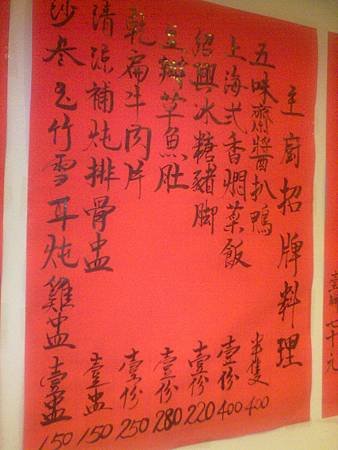 主廚招牌料理
五味齋醬扒鴨 半隻 400
上海式香燜菜飯 壹份 400
紹興冰糖豬脚 壹份 220
豆瓣草魚肚 壹份 280
乾扁牛肉片 壹份 250
清涼補炖排骨盅 壹盅 150
沙参玉竹雪耳炖雞盅 壹盅 150
七十元